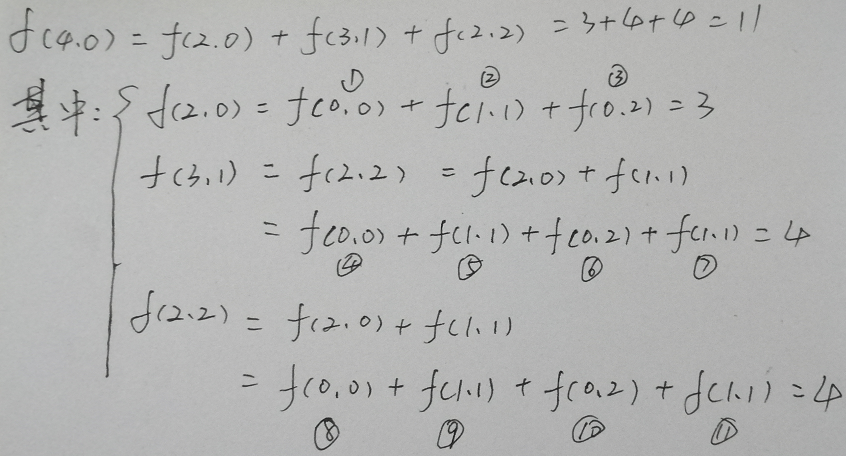 f(4.0) = f(2.0) + f(3,1) + f(2.2) = 3+4+4 = 11
① ② ③
其中: { f(2,0) = f(0,0) + f(1.1) + f(0.2) = 3
f(3,1) = f(2,2) = f(2,0) + f(1.1)
= f(0,0) + f(1.1) + f(0.2) + f(1.1) = 4
④ ⑤ ⑥ ⑦
f(2.2) = f(2.0) + f(1.1)
= f(0,0) + f(1.1) + f(0.2) + f(1.1) = 4
⑧ ⑨ ⑩ ⑪